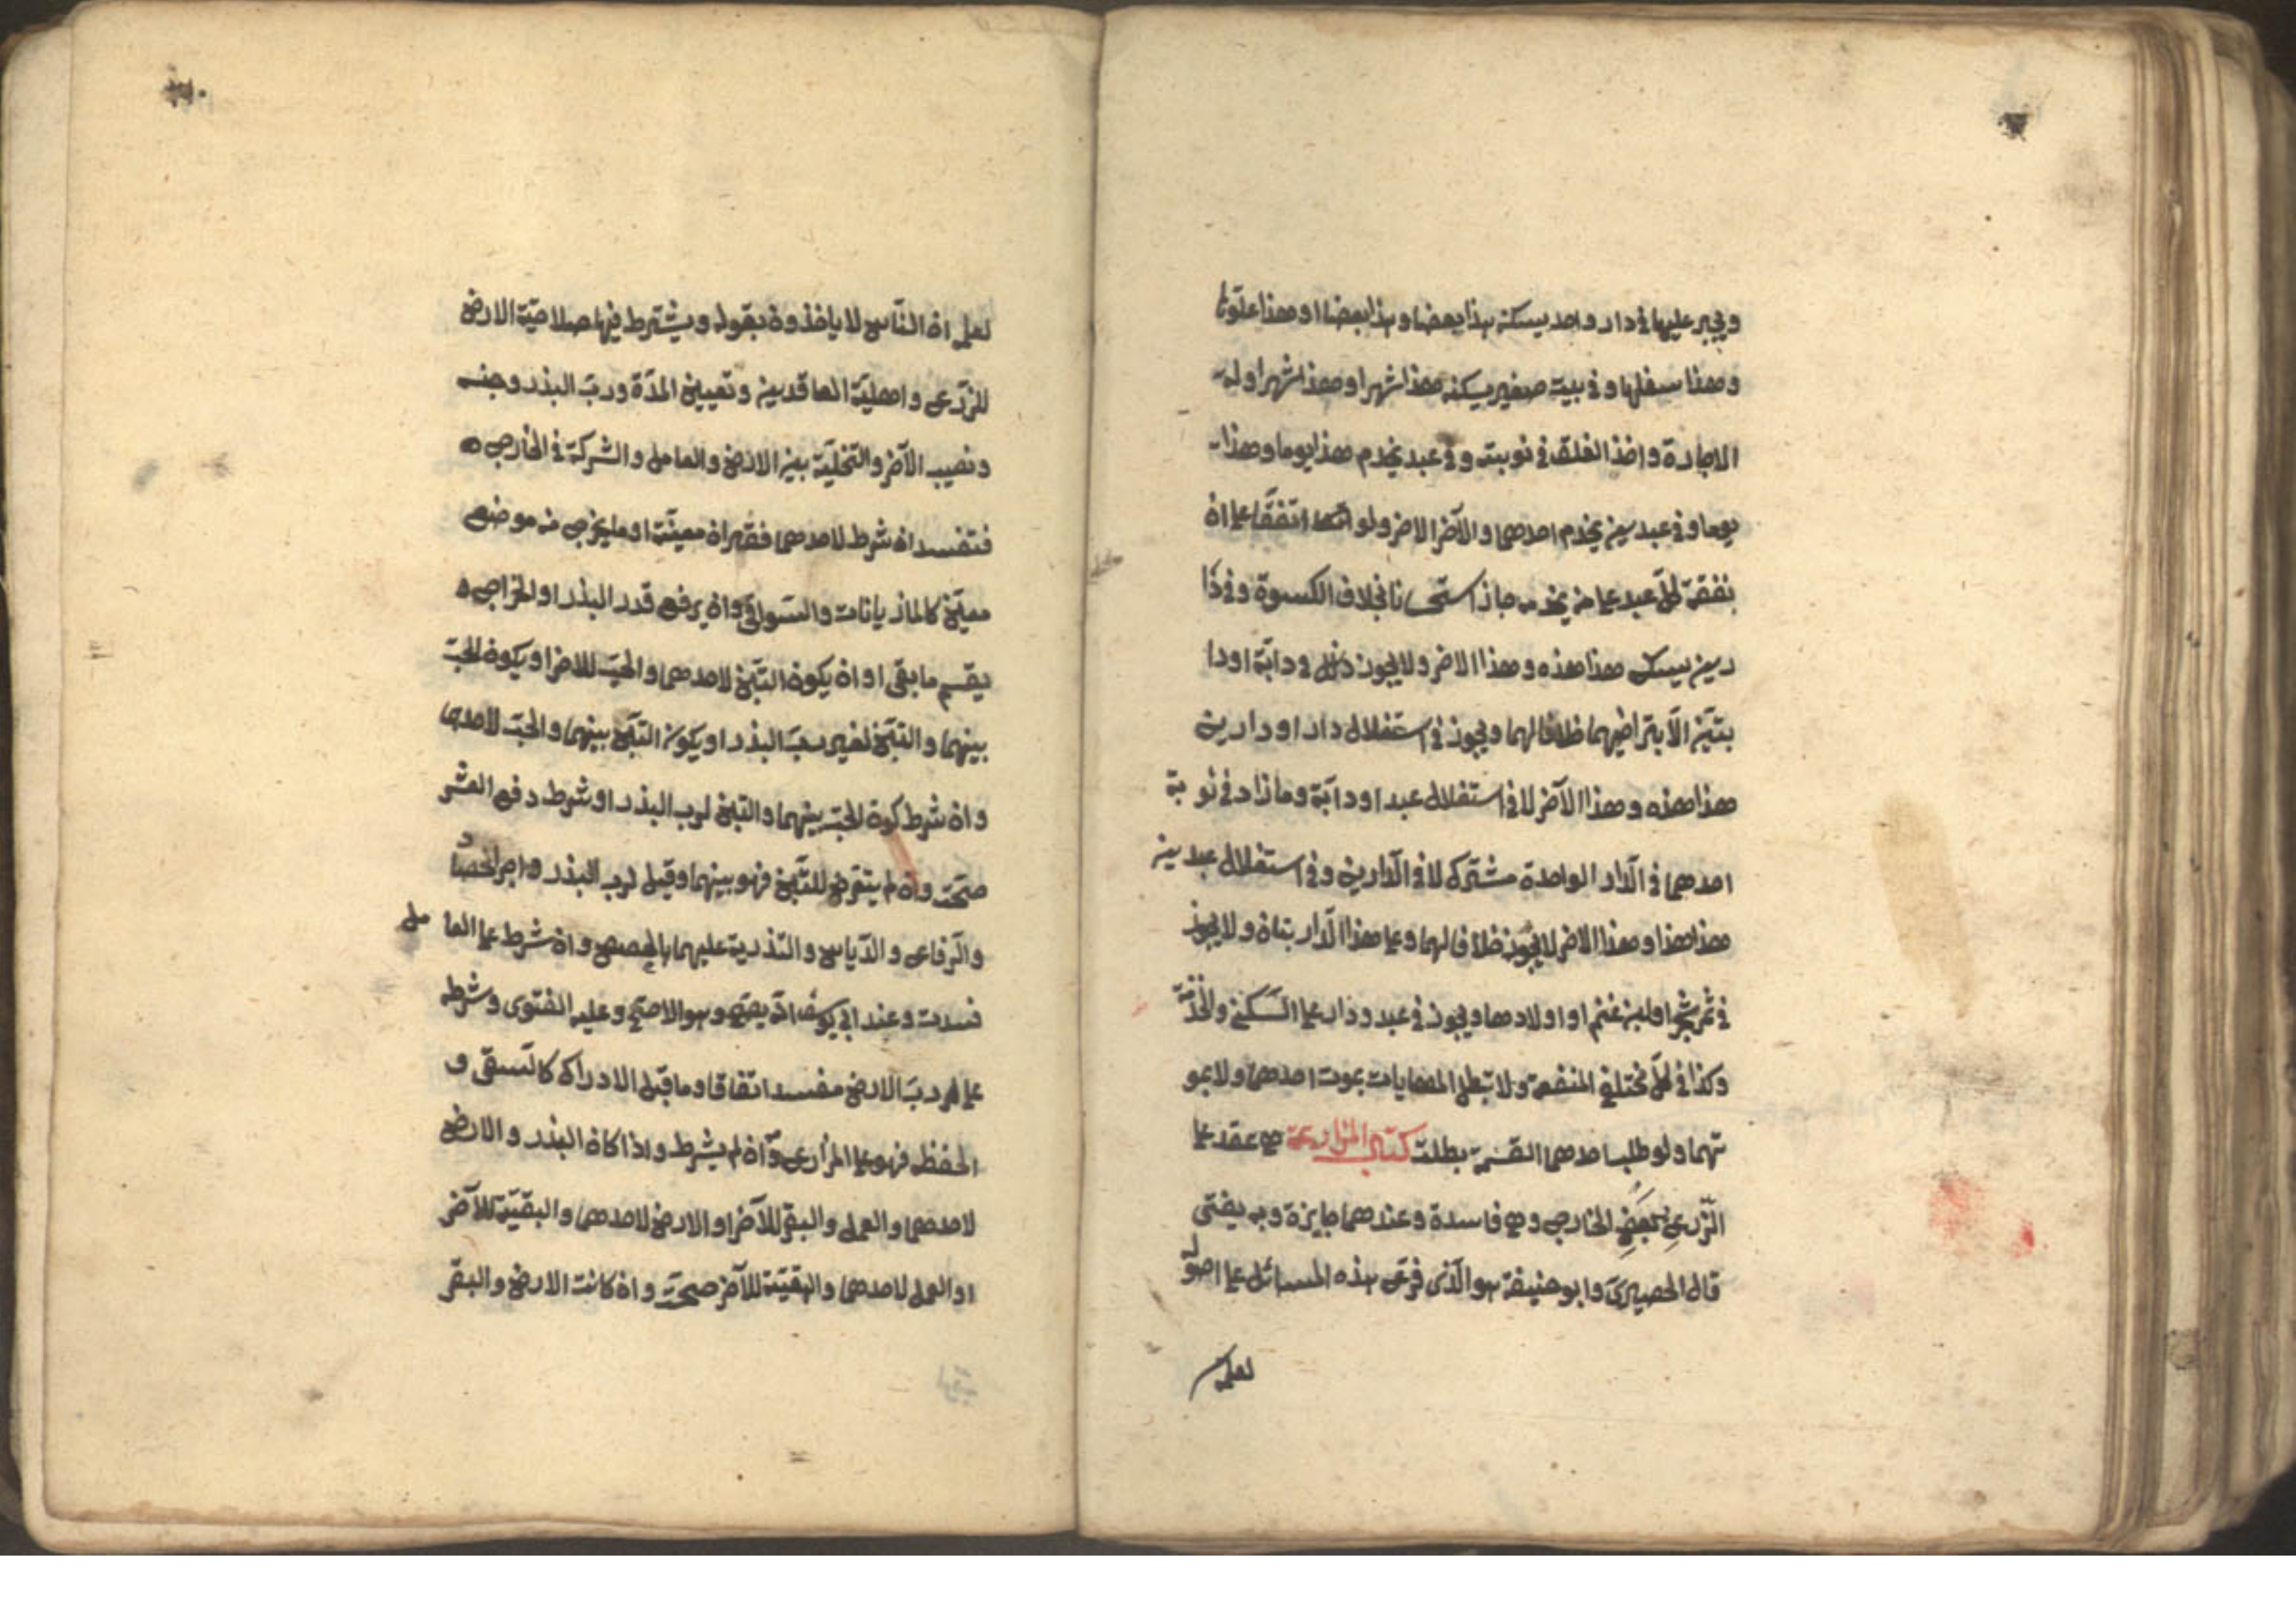 ويجبر عليها في دار واحد يسكن هذا بعضا وهذا بعضا او هذا علوها
وهذا سفلها وفي بيت صغير يسكنه هذا شهرا وهذا شهرا وله
الاجارة واخذ الغلة في نوبته وفي عبد يخدم هذا يوما وهذا
يوما وفي عبدين يخدم احدهما والآخر الاخر ولو اتفقا على ان
نفقة كل عبد على من يخدمه جاز استحسانا بخلاف الكسوة وفي دا
رين يسكن هذا هذه وهذا الاخر ولا يجوز ذلك في دابة او دا
بتين الا بتراضيهما خلافا لهما ويجوز في استغلال دار او دارين
هذا هذه وهذا الآخر لا في استغلال عبد او دابة وما زاد في نوبة
احدهما في الدار الواحدة مشترك لا في الدارين وفي استغلال عبدين
هذا هذا وهذا الاخر لا يجوز خلافا لهما وعلى هذا الدابتان ولا يجوز
في ثمر شجر او لبن غنم او اولادها ويجوز في عبد ودار على السكنى والخدمة
وكذا في كل مختلفي المنفعة ولا تبطل المهايات بموت احدهما ولا بمو
تهما ولو طلب احدهما القسمة بطلت كتاب المزارعة هي عقد على
الزرع ببعض الخارج وهي فاسدة وعندهما جايزة وبه يفتى
قال الحصيري وابو حنيفة هو الذي فرع هذه المسائل على اصوله
لعلمه
لعلمه ان الناس لا ياخذون بقوله ويشترط فيها صلاحية الارض
للزرع واهلية العاقدين وتعيين المدة ورب البذر وجنسه
ونصيب الآخر والتخلية بين الارض والعامل والشركة في الخارج
فتفسد ان شرط لاحدهما قفزان معينة او ما يخرج من موضع
معين كالماذيانات والسواقي وان يرفع قدر البذر او الخراج
يقسم ما بقى او ان يكون التبن لاحدهما والحب للاخر او يكون الحب
بينهما والتبن لغير رب البذر او يكون التبن بينهما والحب لاحدهما
وان شرط كون الحب بينهما والتبن لرب البذر او شرط دفع العشر
صحت وان لم يتعرض للتبن فهو بينهما وقيل لرب البذر واجر الحصاد
والرفاع والدياس والتذرية عليهما بالحصص وان شرط على العامل
فسدت وعند ابي يوسف انه يصح وهو الاصح وعليه الفتوى وشرطه
على رب الارض مفسد اتفاقا وما قبل الادراك كالسقى و
الحفظ فهو على المزارع وان لم يشرط واذا كان البذر والارض
لاحدهما والعمل والبقر للآخر او الارض لاحدهما والبقية للآخر
او العمل لاحدهما والبقية للآخر صحت وان كانت الارض والبقر